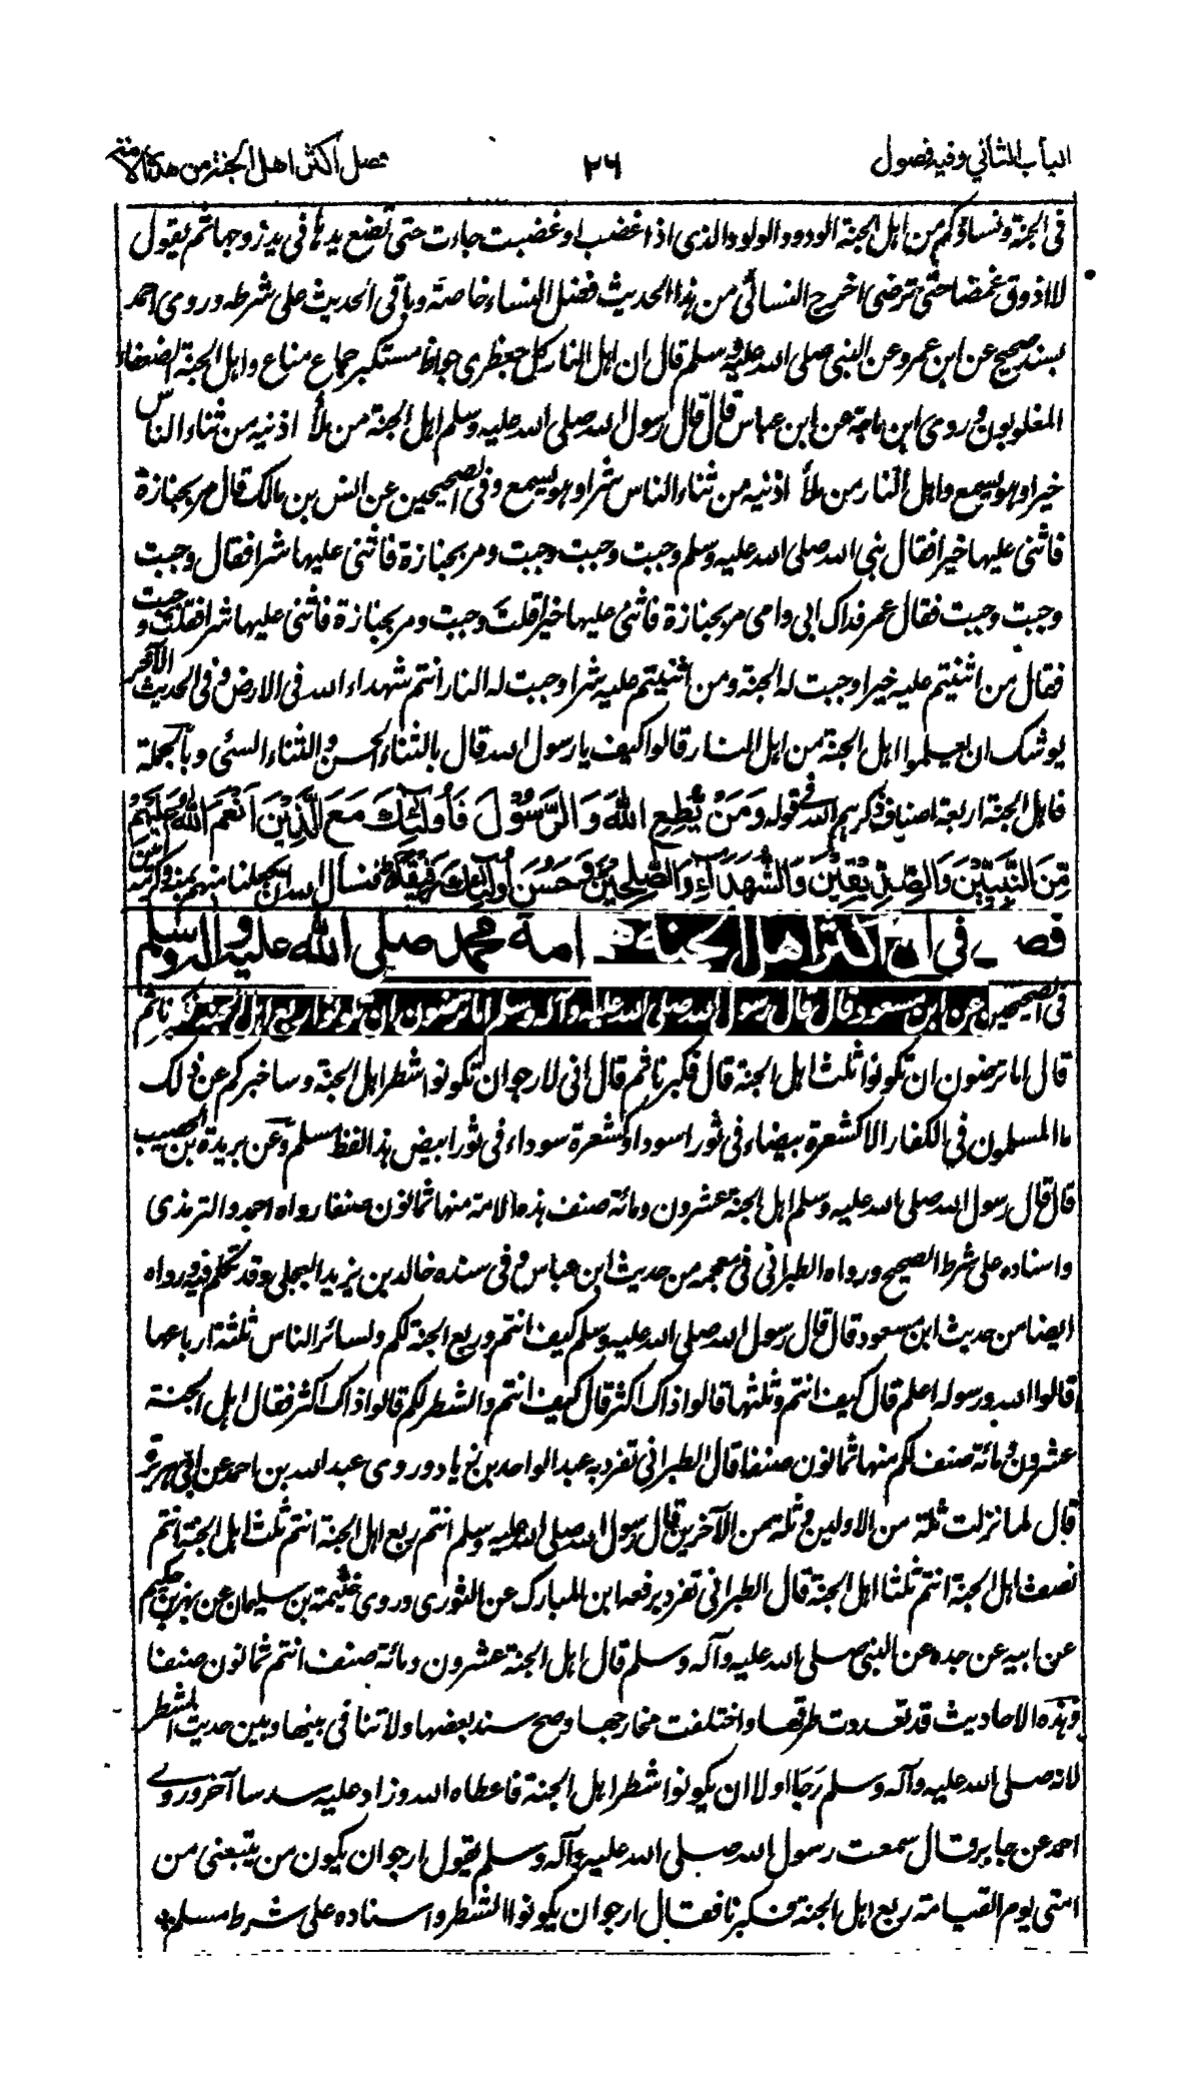 الباب الثاني وفيه فصول
٢٦
فصل اكثر اهل الجنة من هذه الامة
في الجنة ونساؤكم من اهل الجنة الودود الولود الذي اذا غضب او غضبت جاءت حتى تضع يدها في يد زوجها ثم يقول
لا اذوق غمضا حتى ترضى اخرج النسائي من هذا الحديث فضل النساء خاصة وباقي الحديث على شرطه وروى احمد
بسند صحيح عن ابن عمرو عن النبي صلى الله عليه وسلم قال ان اهل النار كل جعظري جواظ مستكبر جماع مناع واهل الجنة الضعفاء
المغلوبون وروى ابن ماجة عن ابن عباس قال قال رسول الله صلى الله عليه وسلم اهل الجنة من ملأ اذنيه من ثناء الناس
خيرا وهو يسمع واهل النار من ملأ اذنيه من ثناء الناس شرا وهو يسمع وفي الصحيحين عن انس بن مالك قال مر بجنازة
فاثني عليها خيرا فقال نبي الله صلى الله عليه وسلم وجبت وجبت وجبت ومر بجنازة فاثني عليها شرا فقال وجبت
وجبت وجبت فقال عمر فداك ابي وامي مر بجنازة فاثني عليها خيرا قلت وجبت ومر بجنازة فاثني عليها شرا فقلت وجبت
فقال من اثنيتم عليه خيرا وجبت له الجنة ومن اثنيتم عليه شرا وجبت له النار انتم شهداء الله في الارض وفي الحديث الآخر
يوشك ان يعلموا اهل الجنة من اهل النار قالوا كيف يا رسول الله قال بالثناء الحسن والثناء السئي وبالجملة
فاهل الجنة اربعة اصناف ذكرهم الله في قوله وَمَنْ يُّطِعِ اللّٰهَ وَالرَّسُوْلَ فَأُولٰئِكَ مَعَ الَّذِيْنَ اَنْعَمَ اللّٰهُ عَلَيْهِمْ
مِّنَ النَّبِيّٖنَ وَالصِّدِّيْقِيْنَ وَالشُّهَدَآءِ وَالصّٰلِحِيْنَ وَحَسُنَ أُولٰئِكَ رَفِيْقًا نسأل الله ان يجعلنا منهم بمنه وكرمه امين
فصل في ان اكثر اهل الجنة هم امة محمد صلى الله عليه واله وسلم
في الصحيحين عن ابن مسعود قال قال رسول الله صلى الله عليه وآله وسلم اما ترضون ان تكونوا ربع اهل الجنة فكبرنا ثم
قال اما ترضون ان تكونوا ثلث اهل الجنة قال فكبرنا ثم قال اني لارجو ان تكونوا شطر اهل الجنة وساخبركم عن ذلك
ما المسلمون في الكفار الا كشعرة بيضاء في ثور اسود او كشعرة سوداء في ثور ابيض هذا لفظ مسلم وعن بريدة بن الحصيب
قال قال رسول الله صلى الله عليه وسلم اهل الجنة عشرون ومائة صنف هذه الامة منها ثمانون صنفا رواه احمد والترمذي
واسناده على شرط الصحيح ورواه الطبراني في معجمه من حديث ابن عباس وفي سنده خالد بن يزيد البجلي وقد تكلم فيه ورواه
ايضا من حديث ابن مسعود قال قال رسول الله صلى الله عليه وسلم كيف انتم وربع الجنة لكم ولسائر الناس ثلثة ارباعها
قالوا الله ورسوله اعلم قال كيف انتم وثلثها قالوا ذاك اكثر قال كيف انتم والشطر لكم قالوا ذاك اكثر فقال اهل الجنة
عشرون ومائة صنف لكم منها ثمانون صنفا قال الطبراني تفرد به عبد الواحد بن زياد وروى عبد الله بن احمد عن ابي هريرة
قال لما نزلت ثلة من الاولين وثلة من الآخرين قال رسول الله صلى الله عليه وسلم انتم ربع اهل الجنة انتم ثلث اهل الجنة انتم
نصف اهل الجنة انتم ثلثا اهل الجنة قال الطبراني تفرد برفعه ابن المبارك عن الثوري وروى خيثمة بن سليمان عن بهز بن حكيم
عن ابيه عن جده عن النبي صلى الله عليه وآله وسلم قال اهل الجنة عشرون ومائة صنف انتم ثمانون صنفا
وهذه الاحاديث قد تعددت طرقها واختلفت مخارجها وصح سند بعضها ولا تنافي بينها وبين حديث الشطر
لانه صلى الله عليه وآله وسلم رَجَا اولا ان يكونوا شطر اهل الجنة فاعطاه الله وزاد عليه سدسا آخر وروى
احمد عن جابر قال سمعت رسول الله صلى الله عليه وآله وسلم يقول ارجو ان يكون من يتبعني من
امتي يوم القيامة ربع اهل الجنة فكبرنا فقال ارجو ان يكونوا الشطر واسناده على شرط مسلم *